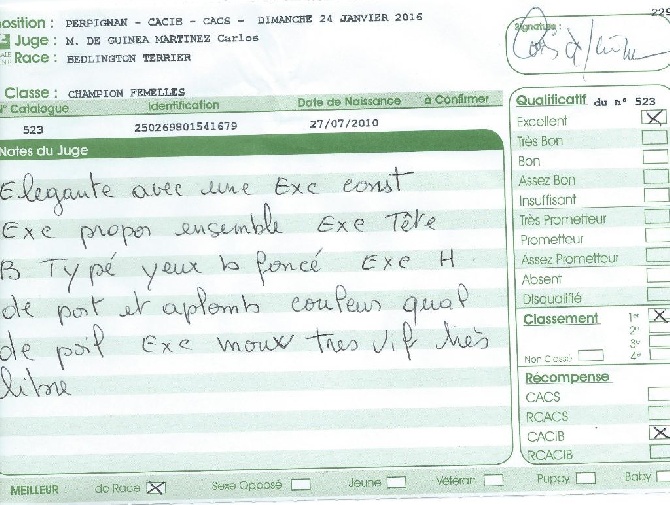 osition : PERPIGNAN - CACIB - CACS - DIMANCHE 24 JANVIER 2016
Juge : M. DE GUINEA MARTINEZ Carlos
Race : BEDLINGTON TERRIER
Classe : CHAMPION FEMELLES
Signature :
229
N° Catalogue Identification Date de Naissance à Confirmer
523 250269801541679 27/07/2010
Notes du Juge
Elegante avec une Exc const
Exc propor ensemble Exc Tête
B Typé yeux b foncé Exc H
de port et aplomb couleur qual
de poil Exc mouv tres vif très
libre
Qualificatif du n° 523
Excellent X
Très Bon
Bon
Assez Bon
Insuffisant
Très Prometteur
Prometteur
Assez Prometteur
Absent
Disqualifié
Classement 1e X
2e
3e
Non Classé 4e
Récompense
CACS
RCACS
CACIB X
RCACIB
MEILLEUR de Race X Sexe Opposé Jeune Vétéran Puppy Baby